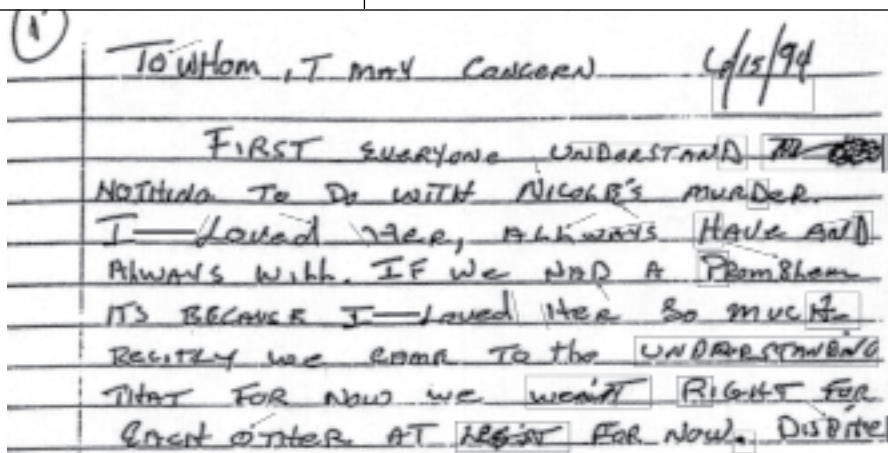 1
TO WHOM, IT MAY CONCERN 6/15/94
FIRST EVERYONE UNDERSTAND
NOTHING TO DO WITH NICOLE'S MURDER.
I LOVED HER, ALLWAYS HAVE AND
ALWAYS WILL. IF WE HAD A PROMBLEM
ITS BECAUSE I LOVED HER SO MUCH.
RECITLY WE CAME TO THE UNDERSTANDING
THAT FOR NOW WE WEREN'T RIGHT FOR
EACH OTHER AT LEAST FOR NOW. DISPITE